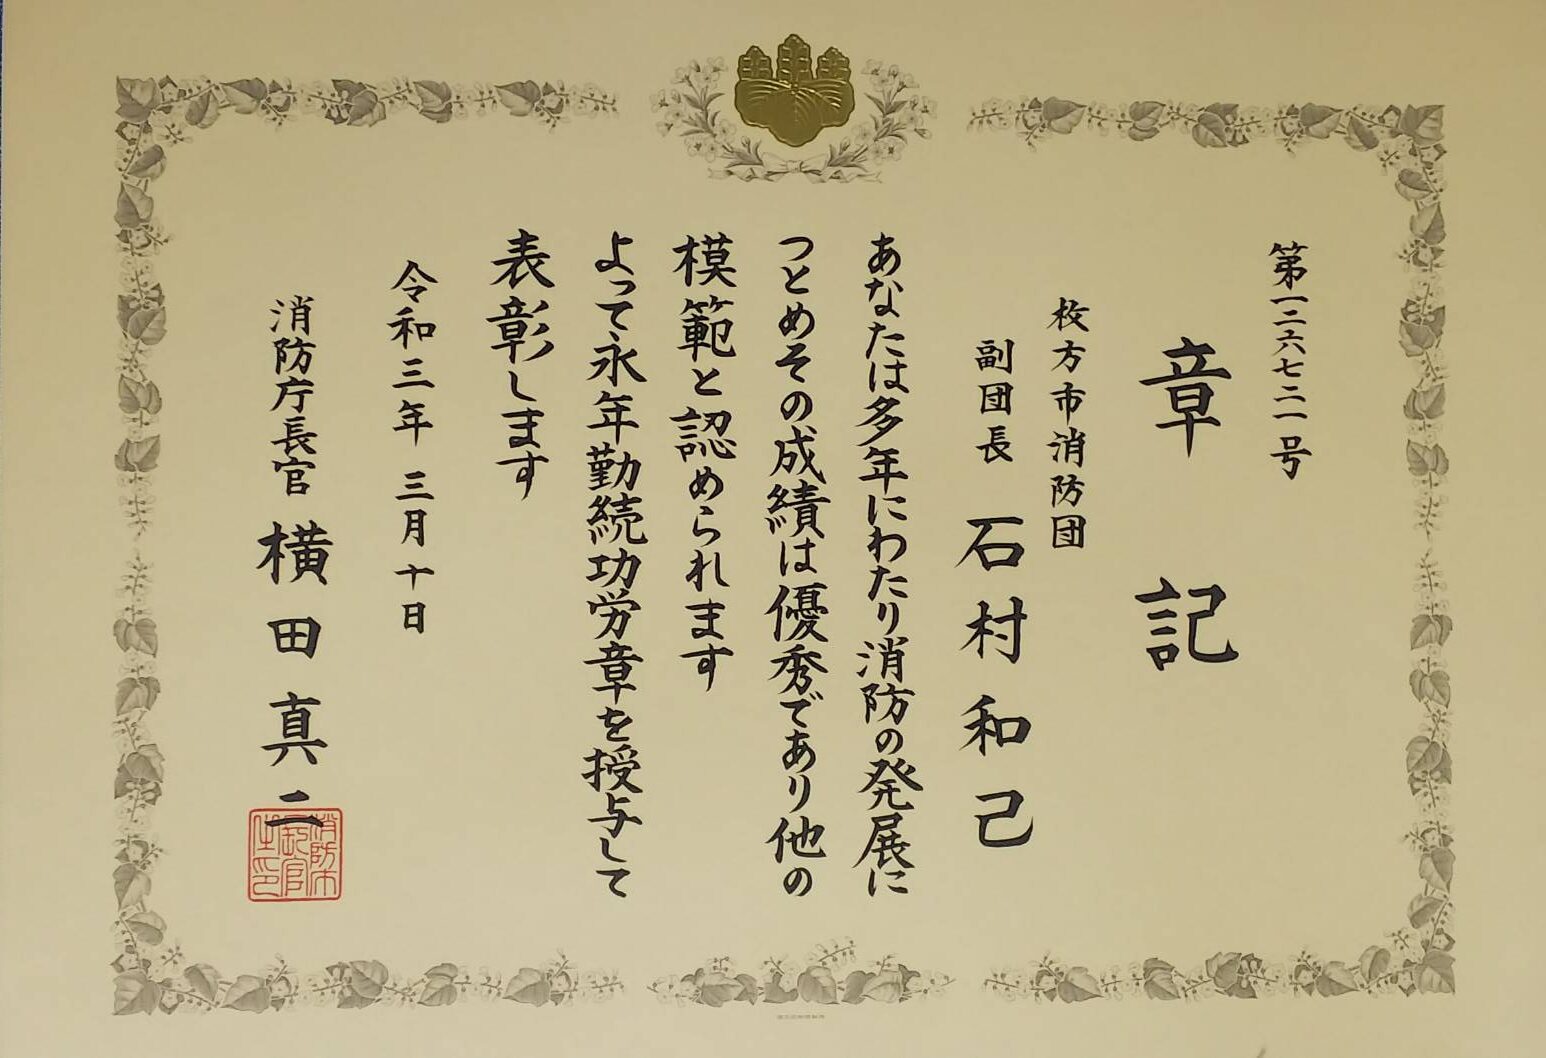 第一二六七二一号
章記
枚方市消防団
副団長 石村和己
あなたは多年にわたり消防の発展に
つとめその成績は優秀であり他の
模範と認められます
よって永年勤続功労章を授与して
表彰します
令和三年 三月十日
消防庁長官 横田真二